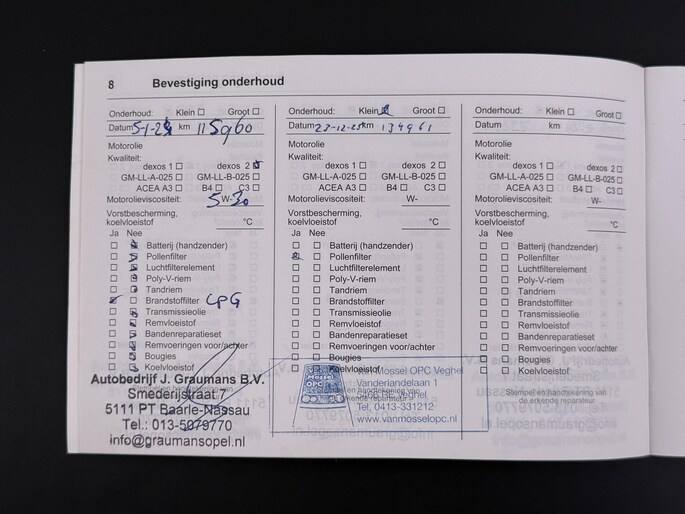 8 Bevestiging onderhoud
Onderhoud: Klein Groot
Datum km 115960
Motorolie
Kwaliteit:
dexos 1 dexos 2
GM-LL-A-025 GM-LL-B-025
ACEA A3 B4 C3
Motorolieviscositeit: 5 W- 30
Vorstbescherming,
koelvloeistof °C
Ja Nee
Batterij (handzender)
Pollenfilter
Luchtfilterelement
Poly-V-riem
Tandriem
Brandstoffilter
Transmissieolie
Remvloeistof
Bandenreparatieset
Remvoeringen voor/achter
Bougies
Koelvloeistof
Autobedrijf J. Graumans B.V.
Smederijstraat 7
5111 PT Baarle-Nassau
Tel.: 013-5079770
info@graumansopel.nl
Onderhoud: Klein Groot
Datum km 134961
Motorolie
Kwaliteit:
dexos 1 dexos 2
GM-LL-A-025 GM-LL-B-025
ACEA A3 B4 C3
Motorolieviscositeit: W-
Vorstbescherming,
koelvloeistof °C
Ja Nee
Batterij (handzender)
Pollenfilter
Luchtfilterelement
Poly-V-riem
Tandriem
Brandstoffilter
Transmissieolie
Remvloeistof
Bandenreparatieset
Remvoeringen voor/achter
Bougies
Koelvloeistof
Mossel OPC Veghel
Vanderlandelaan 1
Tel. 0413-331212
www.vanmosselopc.nl
Mossel
OPC
Onderhoud: Klein Groot
Datum km
Motorolie
Kwaliteit:
dexos 1 dexos 2
GM-LL-A-025 GM-LL-B-025
ACEA A3 B4 C3
Motorolieviscositeit: W-
Vorstbescherming,
koelvloeistof °C
Ja Nee
Batterij (handzender)
Pollenfilter
Luchtfilterelement
Poly-V-riem
Tandriem
Brandstoffilter
Transmissieolie
Remvloeistof
Bandenreparatieset
Remvoeringen voor/achter
Bougies
Koelvloeistof
Stempel en handtekening van
de erkende reparateur